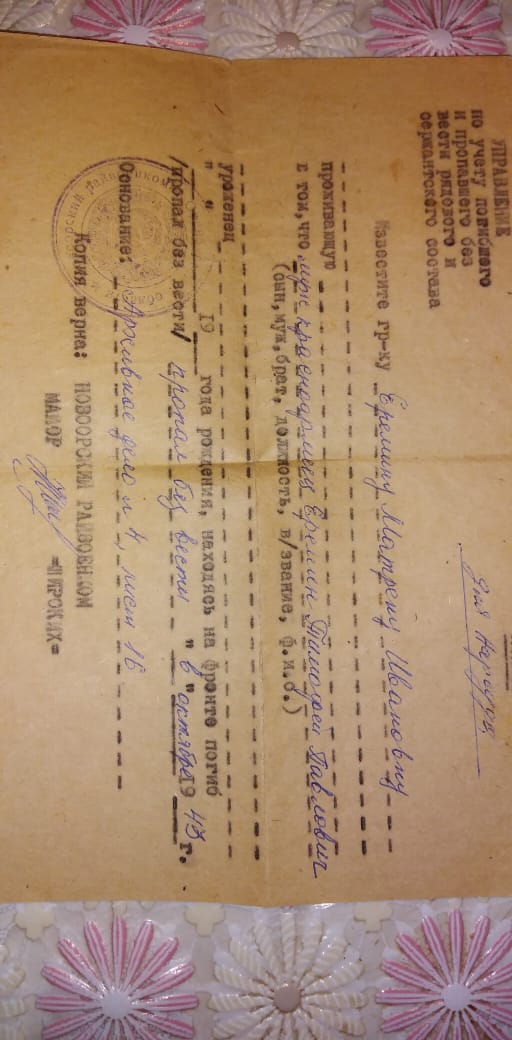 УПРАВЛЕНИЕ
по учету погибшего
и пропавшего без
вести рядового и
сержантского состава
Известите гр-ку Еремину Матрену Ивановну
проживающую
в том, что муж красноармеец Еремин Тимофей Павлович
(сын, муж, брат, должность, в/звание, ф.и.о.)
уроженец
" " 19 года рождения, находясь на фронте погиб
/пропал без вести/ пропал без вести " в " октябре 19 43 г.
Основание: Архивное дело н 4, лист 16
Копия верна: НОВООРСКИЙ РАЙВОЕНКОМ
МАЙОР =ШИРОКИХ=